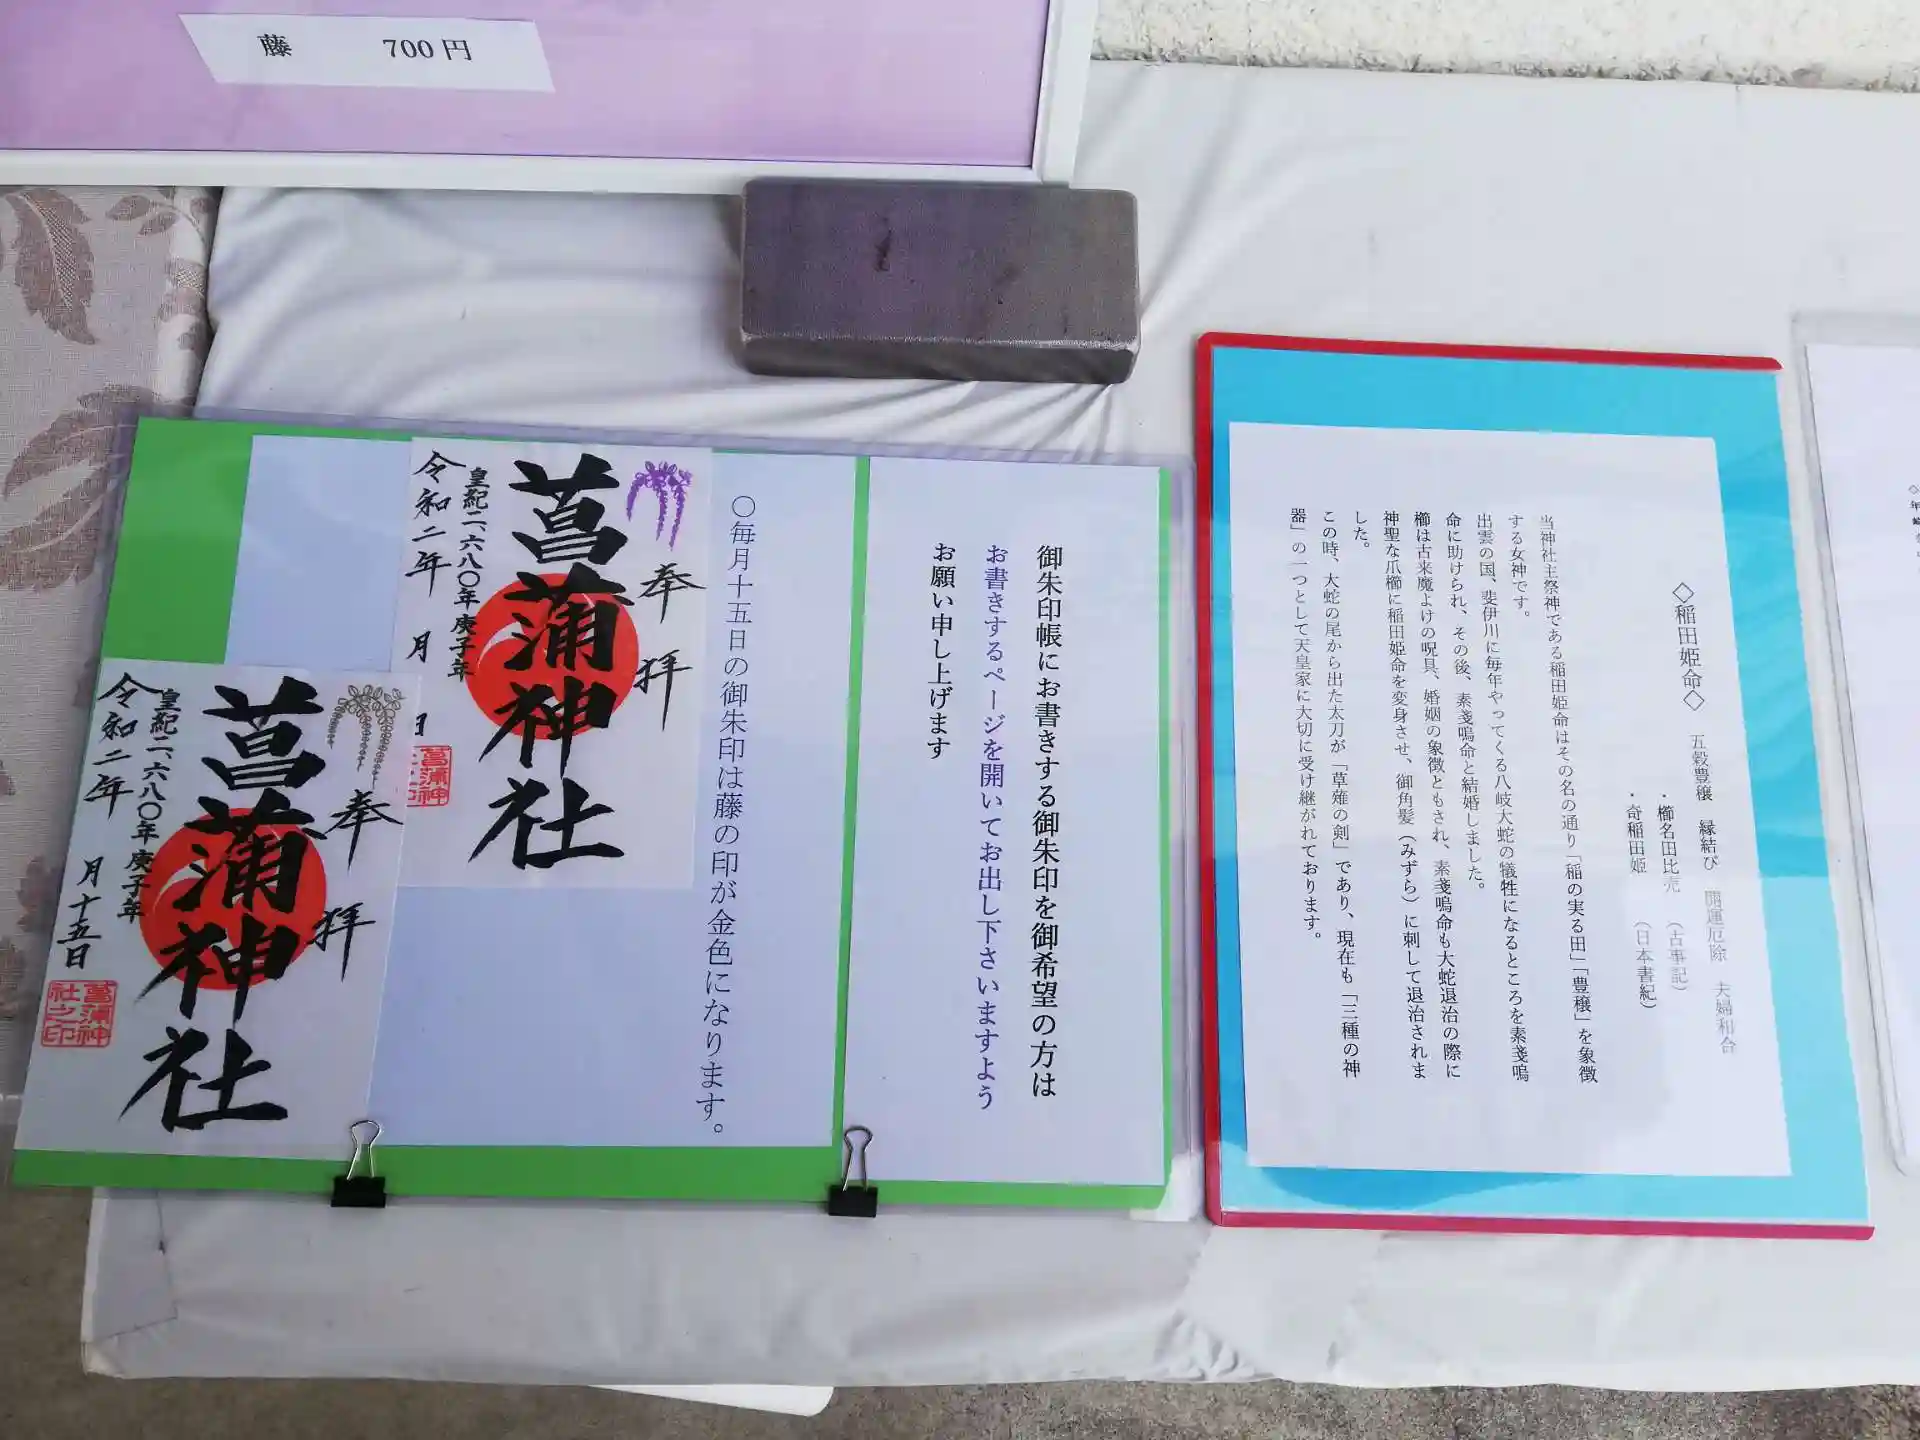 藤 700円
御朱印帳にお書きする御朱印を御希望の方は
お書きするページを開いてお出し下さいますよう
お願い申し上げます
〇毎月十五日の御朱印は藤の印が金色になります。
奉拝
菖蒲神社
皇紀二、六八〇年庚子年
令和二年 月 日
菖蒲神
奉拝
菖蒲神社
皇紀二、六八〇年庚子年
令和二年 月十五日
菖蒲神
社之印
◇稲田姫命◇ 五穀豊穣 縁結び 開運厄除 夫婦和合
・櫛名田比売 (古事記)
・奇稲田姫 (日本書紀)
当神社主祭神である稲田姫命はその名の通り「稲の実る田」「豊穣」を象徴
する女神です。
出雲の国、斐伊川に毎年やってくる八岐大蛇の犠牲になるところを素戔嗚
命に助けられ、その後、素戔嗚命と結婚しました。
櫛は古来魔よけの呪具、婚姻の象徴ともされ、素戔嗚命も大蛇退治の際に
神聖な爪櫛に稲田姫命を変身させ、御角髪(みずら)に刺して退治されま
した。
この時、大蛇の尾から出た太刀が「草薙の剣」であり、現在も「三種の神
器」の一つとして天皇家に大切に受け継がれております。